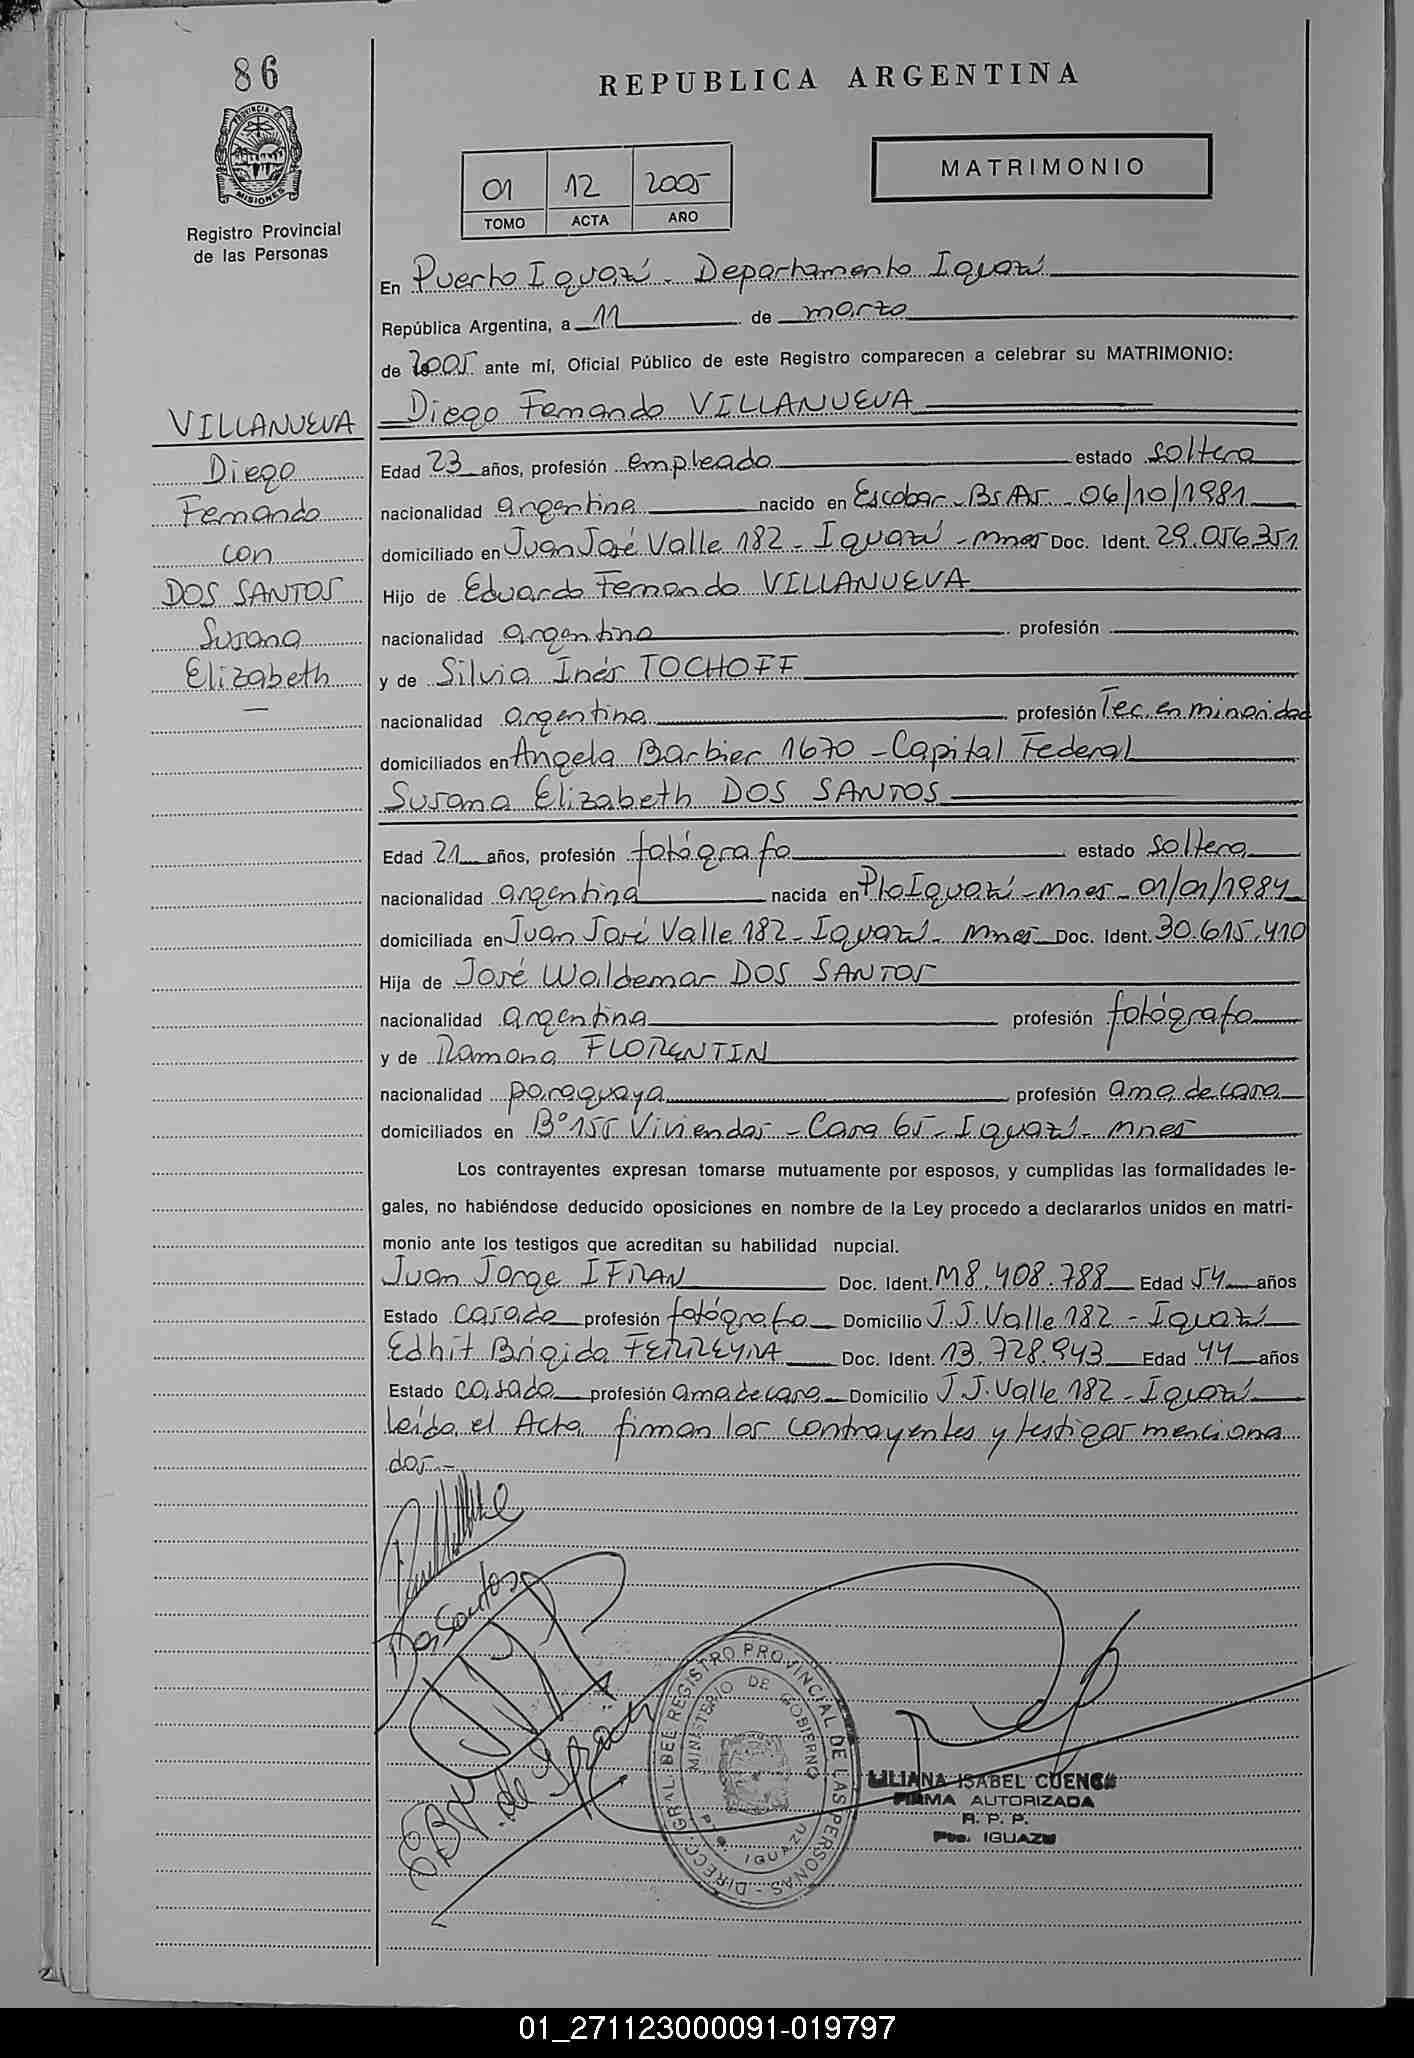 86
REPUBLICA ARGENTINA
PROVINCIA DE
MISIONES
Registro Provincial
de las Personas
01 12 2005
TOMO ACTA AÑO
MATRIMONIO
En Puerto Iguazú - Departamento Iguazú
República Argentina, a 11 de marzo
de 2005 ante mí, Oficial Público de este Registro comparecen a celebrar su MATRIMONIO:
Diego Fernando VILLANUEVA
VILLANUEVA
Diego
Fernando
con
DOS SANTOS
Susana
Elizabeth
—
Edad 23 años, profesión empleado estado soltero
nacionalidad argentina nacido en Escobar - Bs As - 06/10/1981
domiciliado en Juan José Valle 182 - Iguazú - Mnes Doc. Ident. 29.056.351
Hijo de Eduardo Fernando VILLANUEVA
nacionalidad argentina profesión
y de Silvia Inés TOCHOFF
nacionalidad argentina profesión Tec. en minoridad
domiciliados en Angela Barbier 1670 - Capital Federal
Susana Elizabeth DOS SANTOS
Edad 21 años, profesión fotógrafa estado soltera
nacionalidad argentina nacida en Pto Iguazú - Mnes - 01/01/1984
domiciliada en Juan José Valle 182 - Iguazú - Mnes Doc. Ident. 30.615.410
Hija de José Waldemar DOS SANTOS
nacionalidad argentina profesión fotógrafo
y de Ramona FLORENTIN
nacionalidad paraguaya profesión ama de casa
domiciliados en Bº 155 Viviendas - Casa 65 - Iguazú - Mnes
Los contrayentes expresan tomarse mutuamente por esposos, y cumplidas las formalidades le-
gales, no habiéndose deducido oposiciones en nombre de la Ley procedo a declararlos unidos en matri-
monio ante los testigos que acreditan su habilidad nupcial.
Juan Jorge IFRAN Doc. Ident. M8.408.788 Edad 54 años
Estado casado profesión fotógrafo Domicilio J.J. Valle 182 - Iguazú
Edhit Brígida FERREYRA Doc. Ident. 13.728.943 Edad 44 años
Estado casada profesión ama de casa Domicilio J.J. Valle 182 - Iguazú
leída el Acta, firman los contrayentes y testigos menciona
dos.-
Dos Santos
de Ifrán
DIRECC. GRAL. DEL REGISTRO PROVINCIAL DE LAS PERSONAS
MINISTERIO DE GOBIERNO
PTO. IGUAZU
LILIANA ISABEL CUENCA
FIRMA AUTORIZADA
R. P. P.
Pto. IGUAZU
01_271123000091-019797